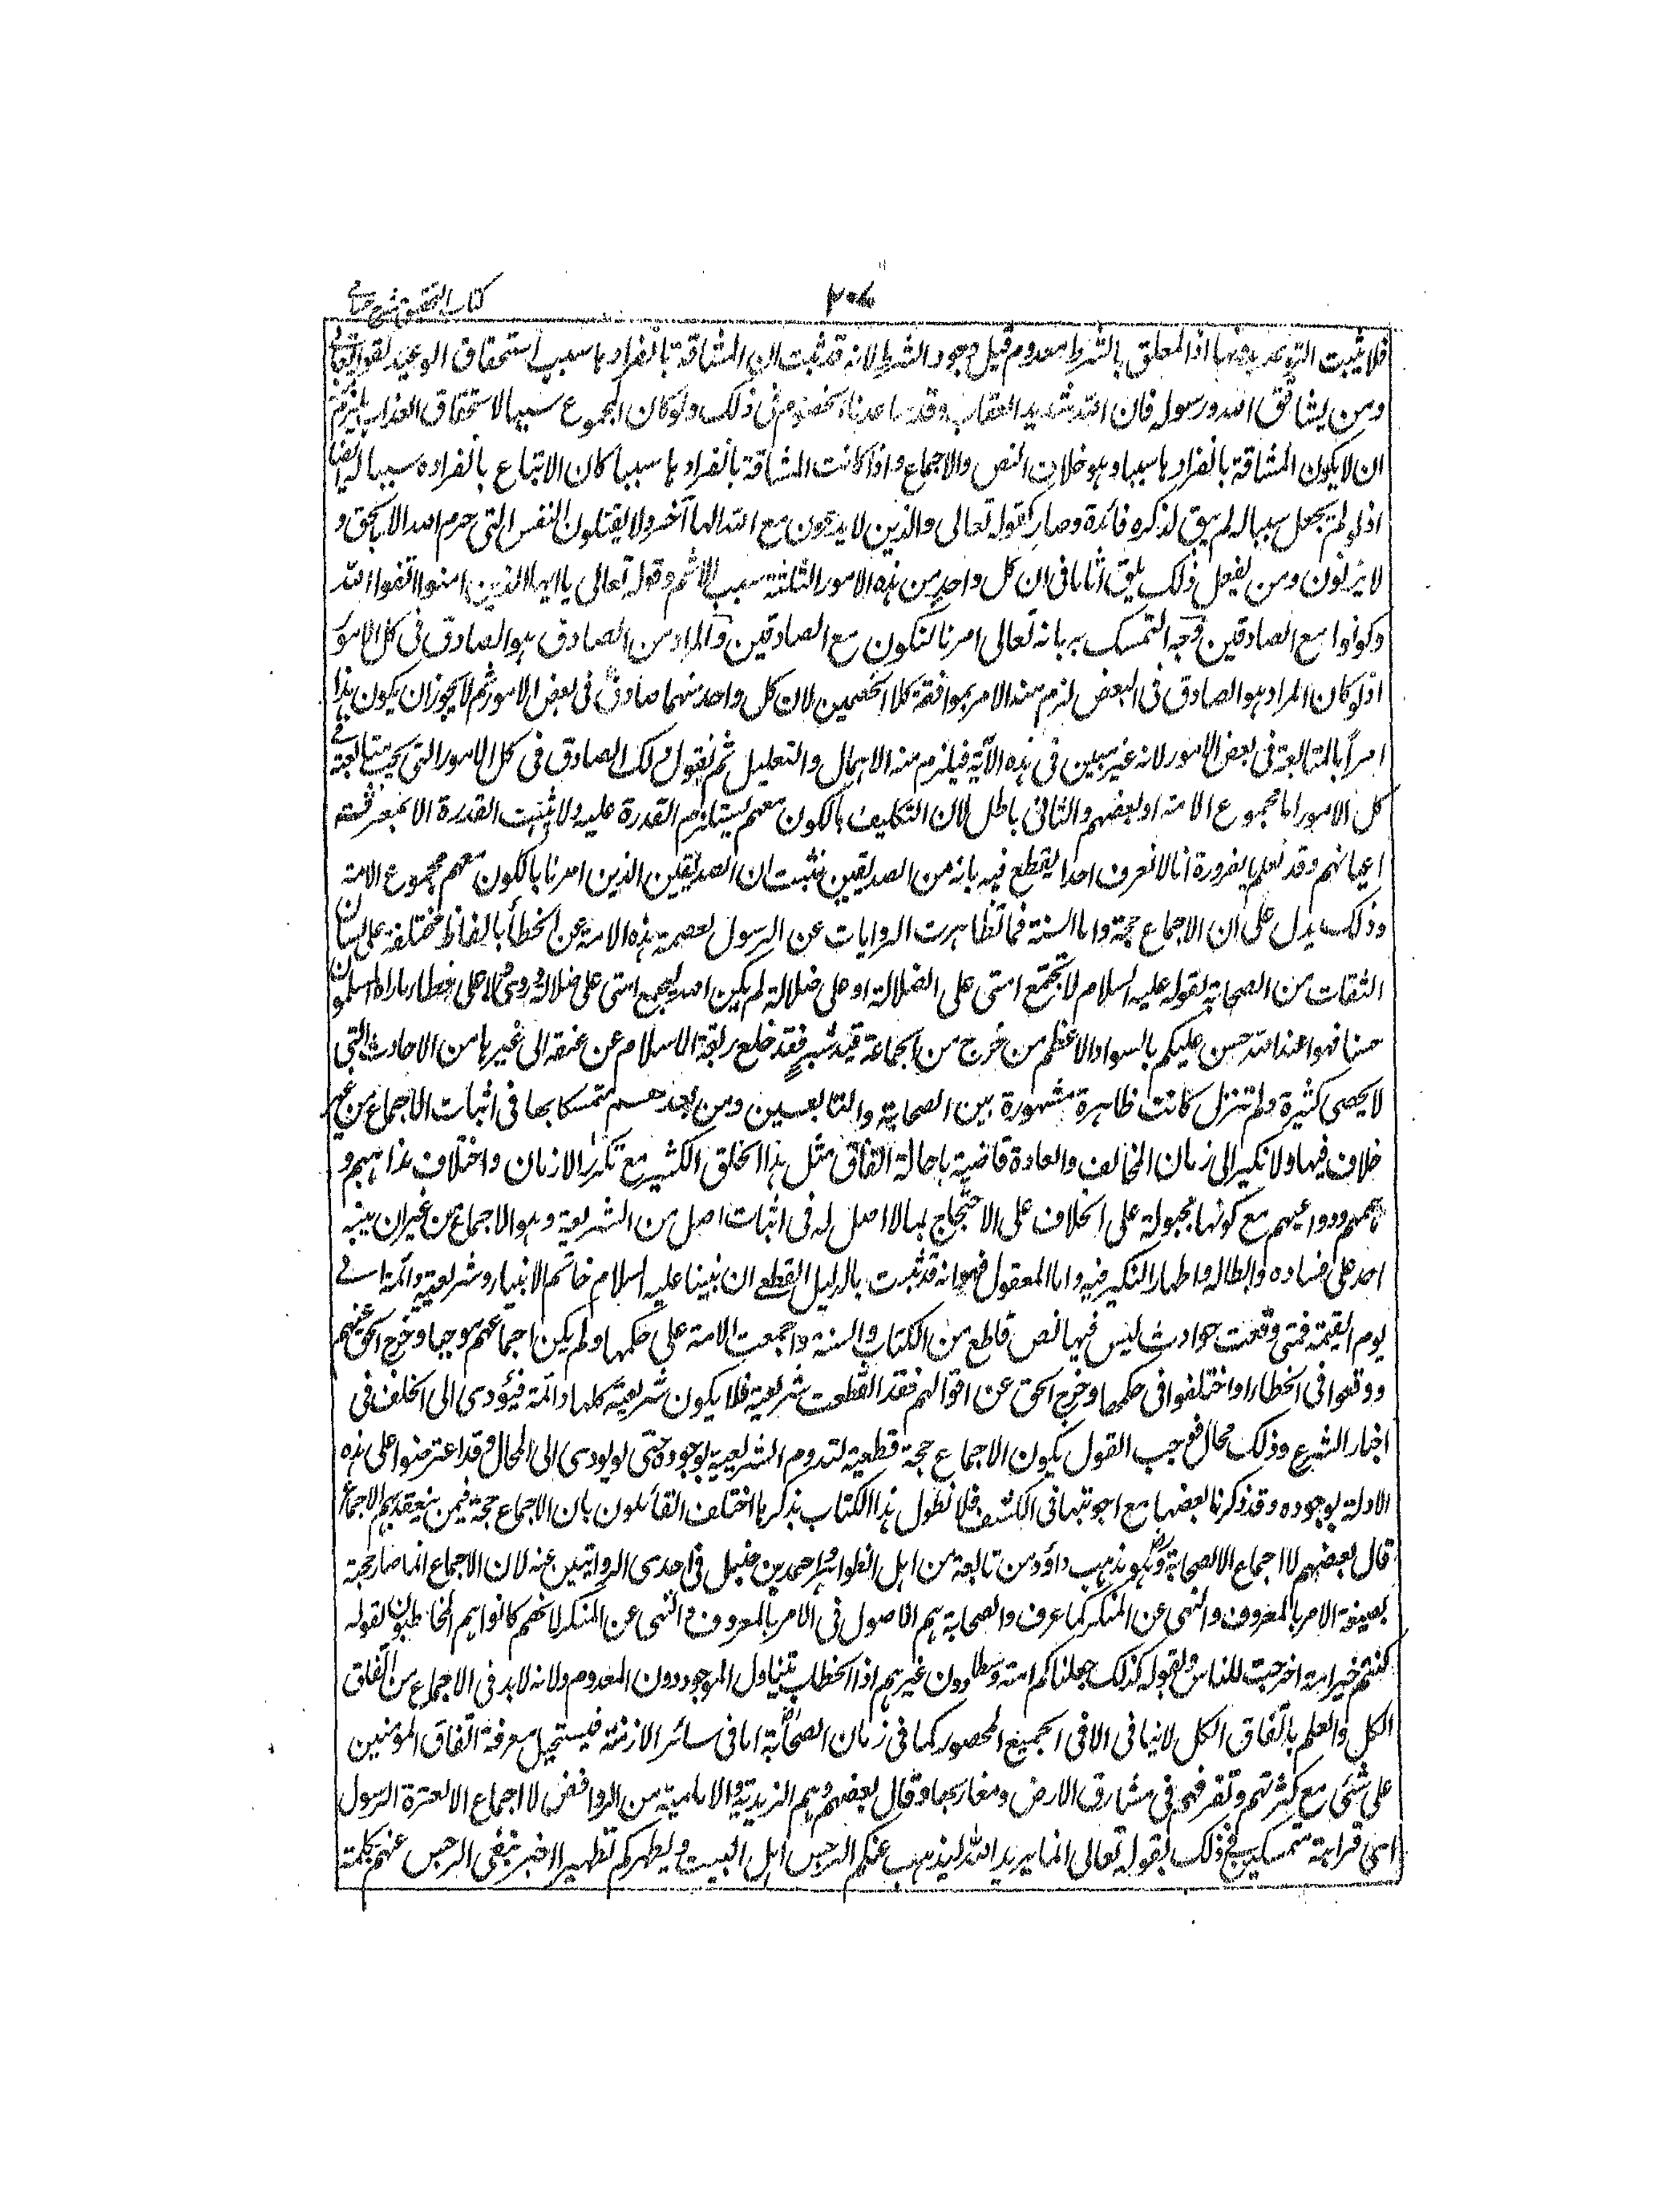 كتاب التحقيق شرح حسامى
٢٠٧
فلا يثبت التوعد بدونها اذ المعلق بالشرط معدوم قبل وجود الشرط لانه قد ثبت ان المشاقة بانفرادها سبب استحقاق الوعيد لقوله تعالى
ومن يشاقق الله ورسوله فان الله شديد العقاب وقد ساعدنا الخصوم فى ذلك ولو كان المجموع سببا لاستحقاق العذاب يلزم
ان لا يكون المشاقة بانفرادها سببا وهو خلاف النص والاجماع واذا كانت المشاقة بانفرادها سببا كان الاتباع بانفراده سببا له ايضا
اذ لو لم يجعل سببا له لم يبق لذكره فائدة وصار كقوله تعالى والذين لا يدعون مع الله الها آخر ولا يقتلون النفس التى حرم الله الا بالحق و
لا يزنون ومن يفعل ذلك يلق اثاما فى ان كل واحد من هذه الامور الثلثة سبب للاثم وقوله تعالى يا ايها الذين امنوا اتقوا الله
وكونوا مع الصادقين وجه التمسك به بانه تعالى امرنا لنكون مع الصادقين والمراد من الصادق هو الصادق فى كل الامور
اذ لو كان المراد هو الصادق فى البعض لزم منه الامر بموافقة كلا الخصمين لان كل واحد منهما صادق فى بعض الامور ثم لا يجوز ان يكون هذا
امرا بالمتابعة فى بعض الامور لانه غير مبين فى هذه الآية فيلزم منه الاجمال والتعطيل ثم نقول ذلك الصادق فى كل الامور التى يجب متابعته فى
كل الامور اما مجموع الامة او بعضهم والثانى باطل لان التكليف بالكون معهم يستلزم القدرة عليه ولا تثبت القدرة الا بمعرفة
اعيانهم وقد نعلم بضرورة انا لا نعرف احدا يقطع فيه بانه من الصديقين فثبت ان الصديقين الذين امرنا بالكون معهم مجموع الامة
وذلك يدل على ان الاجماع حجة واما السنة فما تظاهرت الروايات عن الرسول لعصمة هذه الامة عن الخطأ بالفاظ مختلفة على لسان
الثقات من الصحابة لقوله عليه السلام لا تجتمع امتى على الضلالة او على ضلالة لم يكن الله ليجمع امتى على ضلالة وروى ولا على خطأ ما راه المسلمون
حسنا فهو عند الله حسن عليكم بالسواد الاعظم من خرج من الجماعة قيد شبر فقد خلع ربقة الاسلام عن عنقه الى غيرها من الاحاديث التى
لا يحصى كثيرة ولم تزل كانت ظاهرة مشهورة بين الصحابة والتابعين ومن بعدهم متمسكا بها فى اثبات الاجماع من غير
خلاف فيها ولا نكير الى زمان المخالف والعادة قاضية باحالة اتفاق مثل هذا الخلق الكثير مع تكرر الازمان واختلاف مذاهبهم و
هممهم ودواعيهم مع كونها مجبولة على الخلاف على الاحتجاج بما لا اصل له فى اثبات اصل من الشريعة وهو الاجماع من غير ان ينبه
احد على فساده وابطاله واظهار النكير فيه واما المعقول فهو انه قد ثبت بالدليل القطعى ان نبينا عليه السلام خاتم الانبياء وشريعته دائمة الى
يوم القيمة فمتى وقعت حوادث ليس فيها نص قاطع من الكتاب والسنة واجمعت الامة على حكمها ولم يكن اجماعهم موجبا وخرج الحق عنهم
ووقعوا فى الخطاء او اختلفوا فى حكمها وخرج الحق عن اقوالهم فقد انقطعت شريعته فلا يكون شريعته كلها دائمة فيؤدى الى الخلف فى
اخبار الشرع وذلك محال فوجب القول بكون الاجماع حجة قطعية لتدوم الشريعة بوجوده حتى لا يودى الى المحال وقد اعترضوا على هذه
الادلة بوجوده وقد ذكرنا بعضها مع اجوبتها فى الكشف فلا نطول هذا الكتاب بذكرها اختلف القائلون بان الاجماع حجة فيمن ينعقد بهم الاجماع
قال بعضهم لا اجماع الا للصحابة وهو مذهب داؤد ومن تابعه من اهل الظواهر واحمد بن حنبل فى احدى الروايتين عنه لان الاجماع انما صار حجة
بصيغة الامر بالمعروف والنهى عن المنكر كما عرف والصحابة هم الاصول فى الامر بالمعروف والنهى عن المنكر لانهم كانوا هم المخاطبون لقوله
كنتم خير امة اخرجت للناس ولقوله كذلك جعلناكم امة وسطا دون غيرهم اذ الخطاب يتناول الموجود دون المعدوم ولانه لا بد فى الاجماع من اتفاق
الكل والعلم باتفاق الكل لا يتأتى الا فى الجميع المحصور كما فى زمان الصحابة اما فى سائر الازمنة فيستحيل معرفة اتفاق المؤمنين
على شئ مع كثرتهم وتفرقهم فى مشارق الارض ومغاربها وقال بعضهم وهم الزيدية والامامية من الروافض لا اجماع الا لعترة الرسول
اى قرابته متمسكين فى ذلك بقوله تعالى انما يريد الله ليذهب عنكم الرجس اهل البيت ويطهركم تطهيرا اخبر بنفى الرجس عنهم بكلمة